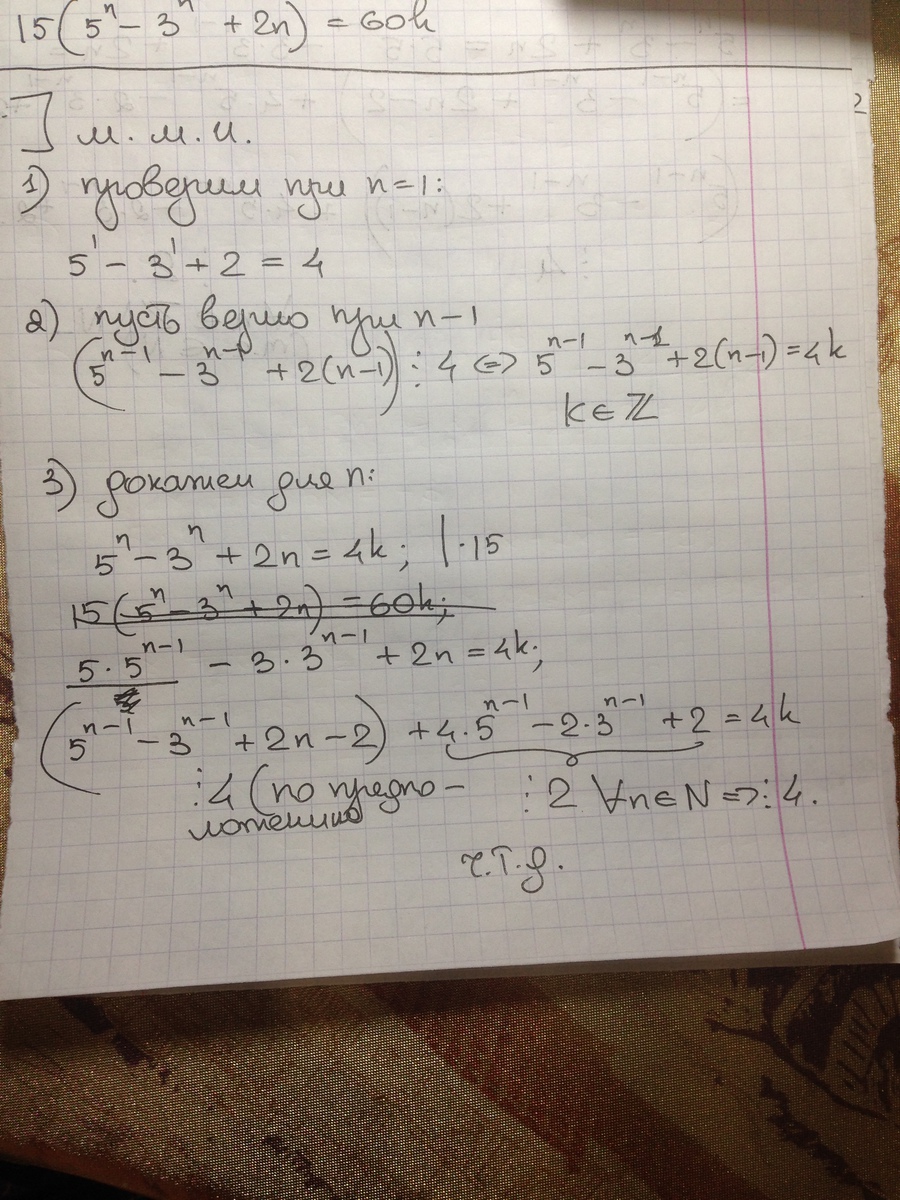 15(5ⁿ - 3ⁿ + 2n) = 60k
] м. м. и.
1) проверим при n=1:
5¹ - 3¹ + 2 = 4
2) пусть верно при n-1
(5ⁿ⁻¹ - 3ⁿ⁻¹ + 2(n-1)) ⋮ 4 <=> 5ⁿ⁻¹ - 3ⁿ⁻¹ + 2(n-1) = 4k
k ∈ ℤ
3) докажем для n:
5ⁿ - 3ⁿ + 2n = 4k; |·15
15(5ⁿ - 3ⁿ + 2n) = 60k;
5·5ⁿ⁻¹ - 3·3ⁿ⁻¹ + 2n = 4k;
(5ⁿ⁻¹ - 3ⁿ⁻¹ + 2n - 2) + 4·5ⁿ⁻¹ - 2·3ⁿ⁻¹ + 2 = 4k
⋮ 4 (по предпо- ⋮ 2 ∀n∈N => ⋮ 4.
ложению
ч.т.д.